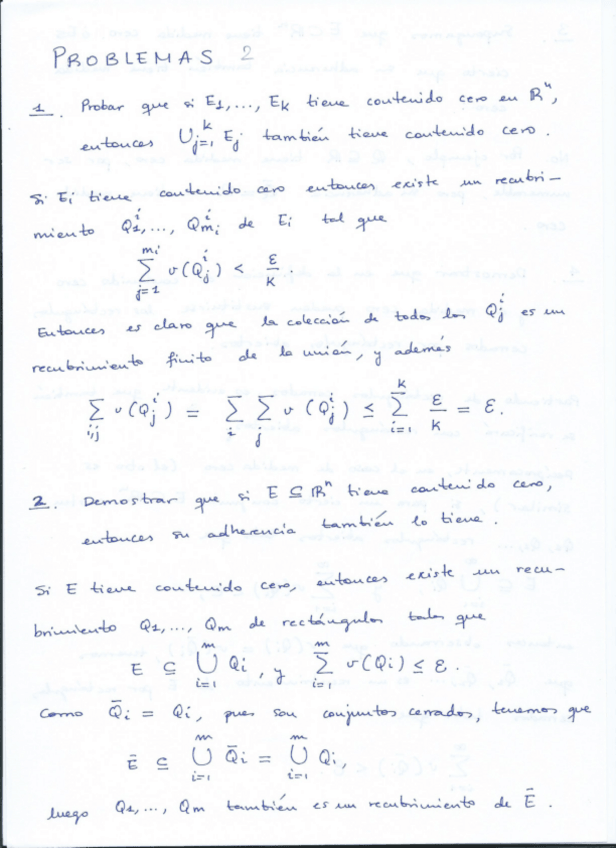 PROBLEMAS 2
1. Probar que si E1,..., Ek tiene contenido cero en ℝⁿ,
entonces ⋃ⱼ₌₁ᵏ Eⱼ también tiene contenido cero.
Si Ei tiene contenido cero entonces existe un recubri-
miento Q₁ⁱ,..., Qᵐⁱ de Ei tal que
∑_{j=1}^{mi} v(Qⱼⁱ) < ε/k.
Entonces es claro que la colección de todos los Qⱼⁱ es un
recubrimiento finito de la unión, y además
∑_{i,j} v(Qⱼⁱ) = ∑_i ∑_j v(Qⱼⁱ) ≤ ∑_{i=1}^{k} ε/k = ε.
2. Demostrar que si E ⊆ ℝⁿ tiene contenido cero,
entonces su adherencia también lo tiene.
Si E tiene contenido cero, entonces existe un recu-
brimiento Q1,..., Qm de rectángulos tales que
E ⊆ ⋃_{i=1}^{m} Qi, y ∑_{i=1}^{m} v(Qi) ≤ ε.
Como Q̄i = Qi, pues son conjuntos cerrados, tenemos que
Ē ⊆ ⋃_{i=1}^{m} Q̄i = ⋃_{i=1}^{m} Qi,
luego Q1,..., Qm también es un recubrimiento de Ē.